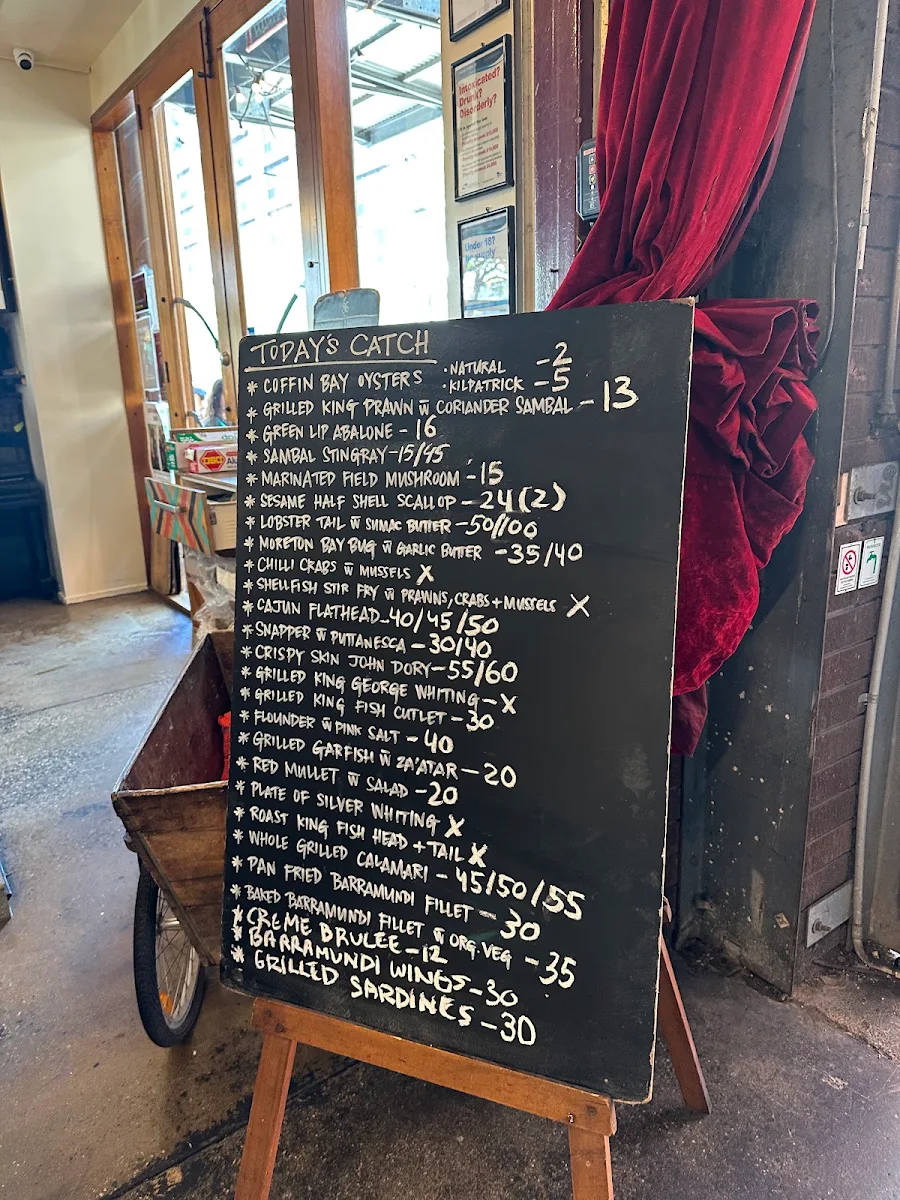 Intoxicated?
Drunk?
Disorderly?
Under 18?
TODAY'S CATCH
* COFFIN BAY OYSTERS · NATURAL - 2
· KILPATRICK - 5
* GRILLED KING PRAWN w̄ CORIANDER SAMBAL - 13
* GREEN LIP ABALONE - 16
* SAMBAL STINGRAY - 15/45
* MARINATED FIELD MUSHROOM - 15
* SESAME HALF SHELL SCALLOP - 24 (2)
* LOBSTER TAIL w̄ SUMAC BUTTER - 50/100
* MORETON BAY BUG w̄ GARLIC BUTTER - 35/40
* CHILLI CRABS w̄ MUSSELS X
* SHELLFISH STIR FRY w̄ PRAWNS, CRABS + MUSSELS X
* CAJUN FLATHEAD - 40/45/50
* SNAPPER w̄ PUTTANESCA - 30/40
* CRISPY SKIN JOHN DORY - 55/60
* GRILLED KING GEORGE WHITING - X
* GRILLED KING FISH CUTLET - 30
* FLOUNDER w̄ PINK SALT - 40
* GRILLED GARFISH w̄ ZA'ATAR - 20
* RED MULLET w̄ SALAD - 20
* PLATE OF SILVER WHITING X
* ROAST KING FISH HEAD + TAIL X
* WHOLE GRILLED CALAMARI - 45/50/55
* PAN FRIED BARRAMUNDI FILLET - 30
* BAKED BARRAMUNDI FILLET w̄ ORG. VEG - 35
* CREME BRULEE - 12
* BARRAMUNDI WINGS - 30
* GRILLED SARDINES - 30